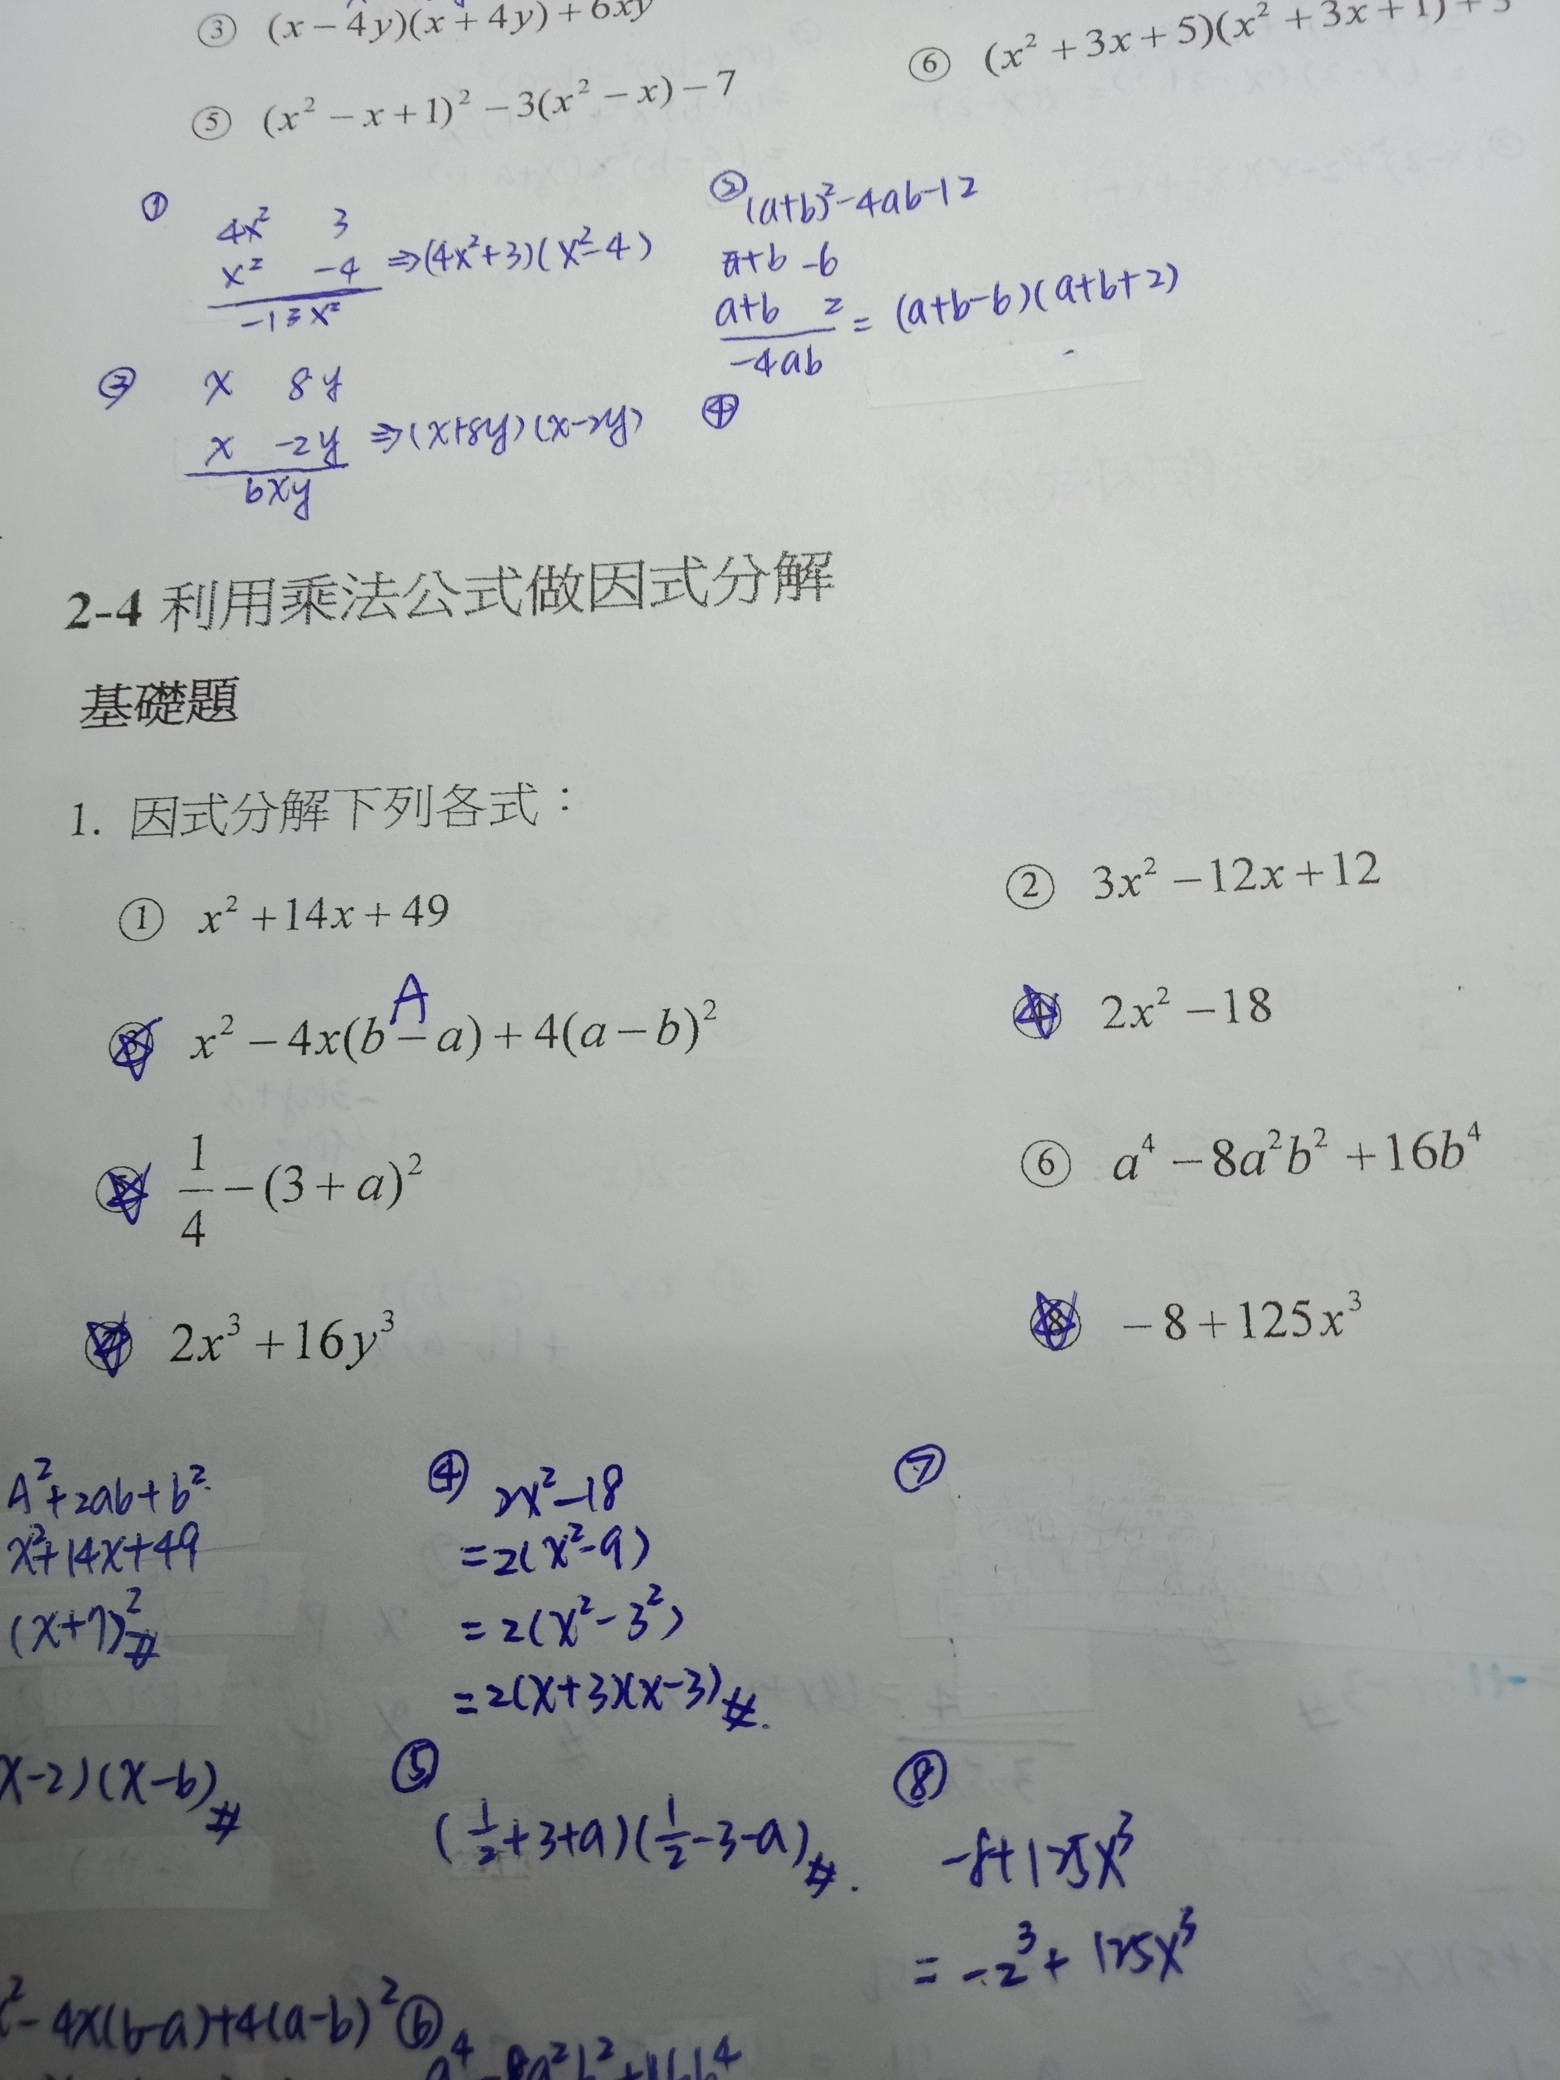 ③ (x-4y)(x+4y)+6xy
⑥ (x²+3x+5)(x²+3x+1)+3
⑤ (x²-x+1)²-3(x²-x)-7
① 4x² 3
x² -4 ⇒(4x²+3)(x²-4)
-13x²
② (a+b)²-4ab-12
a+b -6
a+b 2 = (a+b-6)(a+b+2)
-4ab
③ x 8y
x -2y ⇒(x+8y)(x-2y)
6xy
④
2-4 利用乘法公式做因式分解
基礎題
1. 因式分解下列各式：
① x²+14x+49
② 3x²-12x+12
A
③ x²-4x(b-a)+4(a-b)²
④ 2x²-18
⑤ 1/4-(3+a)²
⑥ a⁴-8a²b²+16b⁴
⑦ 2x³+16y³
⑧ -8+125x³
A²+2ab+b²
x²+14x+49
(x+7)²#
x-2)(x-6)#
x²-4x(b-a)+4(a-b)²
④ 2x²-18
=2(x²-9)
=2(x²-3²)
=2(x+3)(x-3)#.
⑤
(1/2+3+a)(1/2-3-a)#.
⑥
a⁴-8a²b²+16b⁴
⑦
⑧
-8+125x³
= -2³+125x³